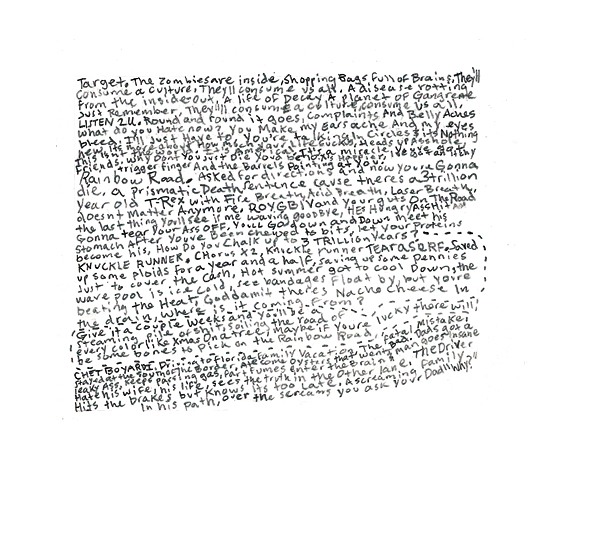 Target. The zombies are inside, shopping Bags full of Brains, They'll
Consume a culture, They'll consume us all, A disease rotting
From the inside out, A life of Decay A planet of Gangrene
Just Remember, They'll consume a culture, consume us all.
LISTEN 2 U. Round and found it goes, Complaints And Belly Aches
what do you Hate now? You Make my Ears ache And my eyes
bleed, I'll just Have to, You're talking in Circles & its Nothing
new, its more about How much your life sucks, Heads up Asshole
This isn't
Friends, why dont you Just Die
trigger finger And the Barrels Pointing at
Rainbow Road. Asked for directions and now you're Gonna
die, a prismatic Death sentence cause theres a 3 trillion
year old T-Rex with Fire Breath, Acid Breath, Laser Breath,
doesnt Matter Anymore, ROYGBIV and your guts On The Road
the last thing you'll see is me waving goodbye, He's Hungry As Shit And
Gonna tear Your Ass OFF, You'll Go down and Down meet his
Stomach After you've Been chewed to bits, let your Proteins
become his, How Do You Chalk up to 3 TRILLION Years?
KNUCKLE RUNNER. Chorus X2, Knuckle runner TEAR ASS REF. Saved
up some Ploids for a year and a half, saving up some pennies
Just to cover the Cash, Hot summer got to cool Down, the
wave pool is ice Cold, see Bandages Float by, but you're
beating the Heat, Goddamit there's Nacho Cheese In
the drain, where is it coming From?
Give it a couple weeks and you'll be a
Steaming pile of shit, soiling the road of
every color like Xmas On Tree, Maybe if Youre lucky there will
be some bones to Pick on the Rainbow Road,
CHET BOYARDI. Driving to Florida Family Vacation, The Bad Dads got a fatal Mistake,
stayed at the South of the Border, Ate some Oysters that went man goes insane
leaky Ass, Keeps passing gas, Part Fumes enter the Brain, The Driver
Hate his wife, his life, sees the truth in the Other lane,
Hits the brakes but knows its too Late, A screaming Family
In his path, over the screams you ask your Dad "why?"